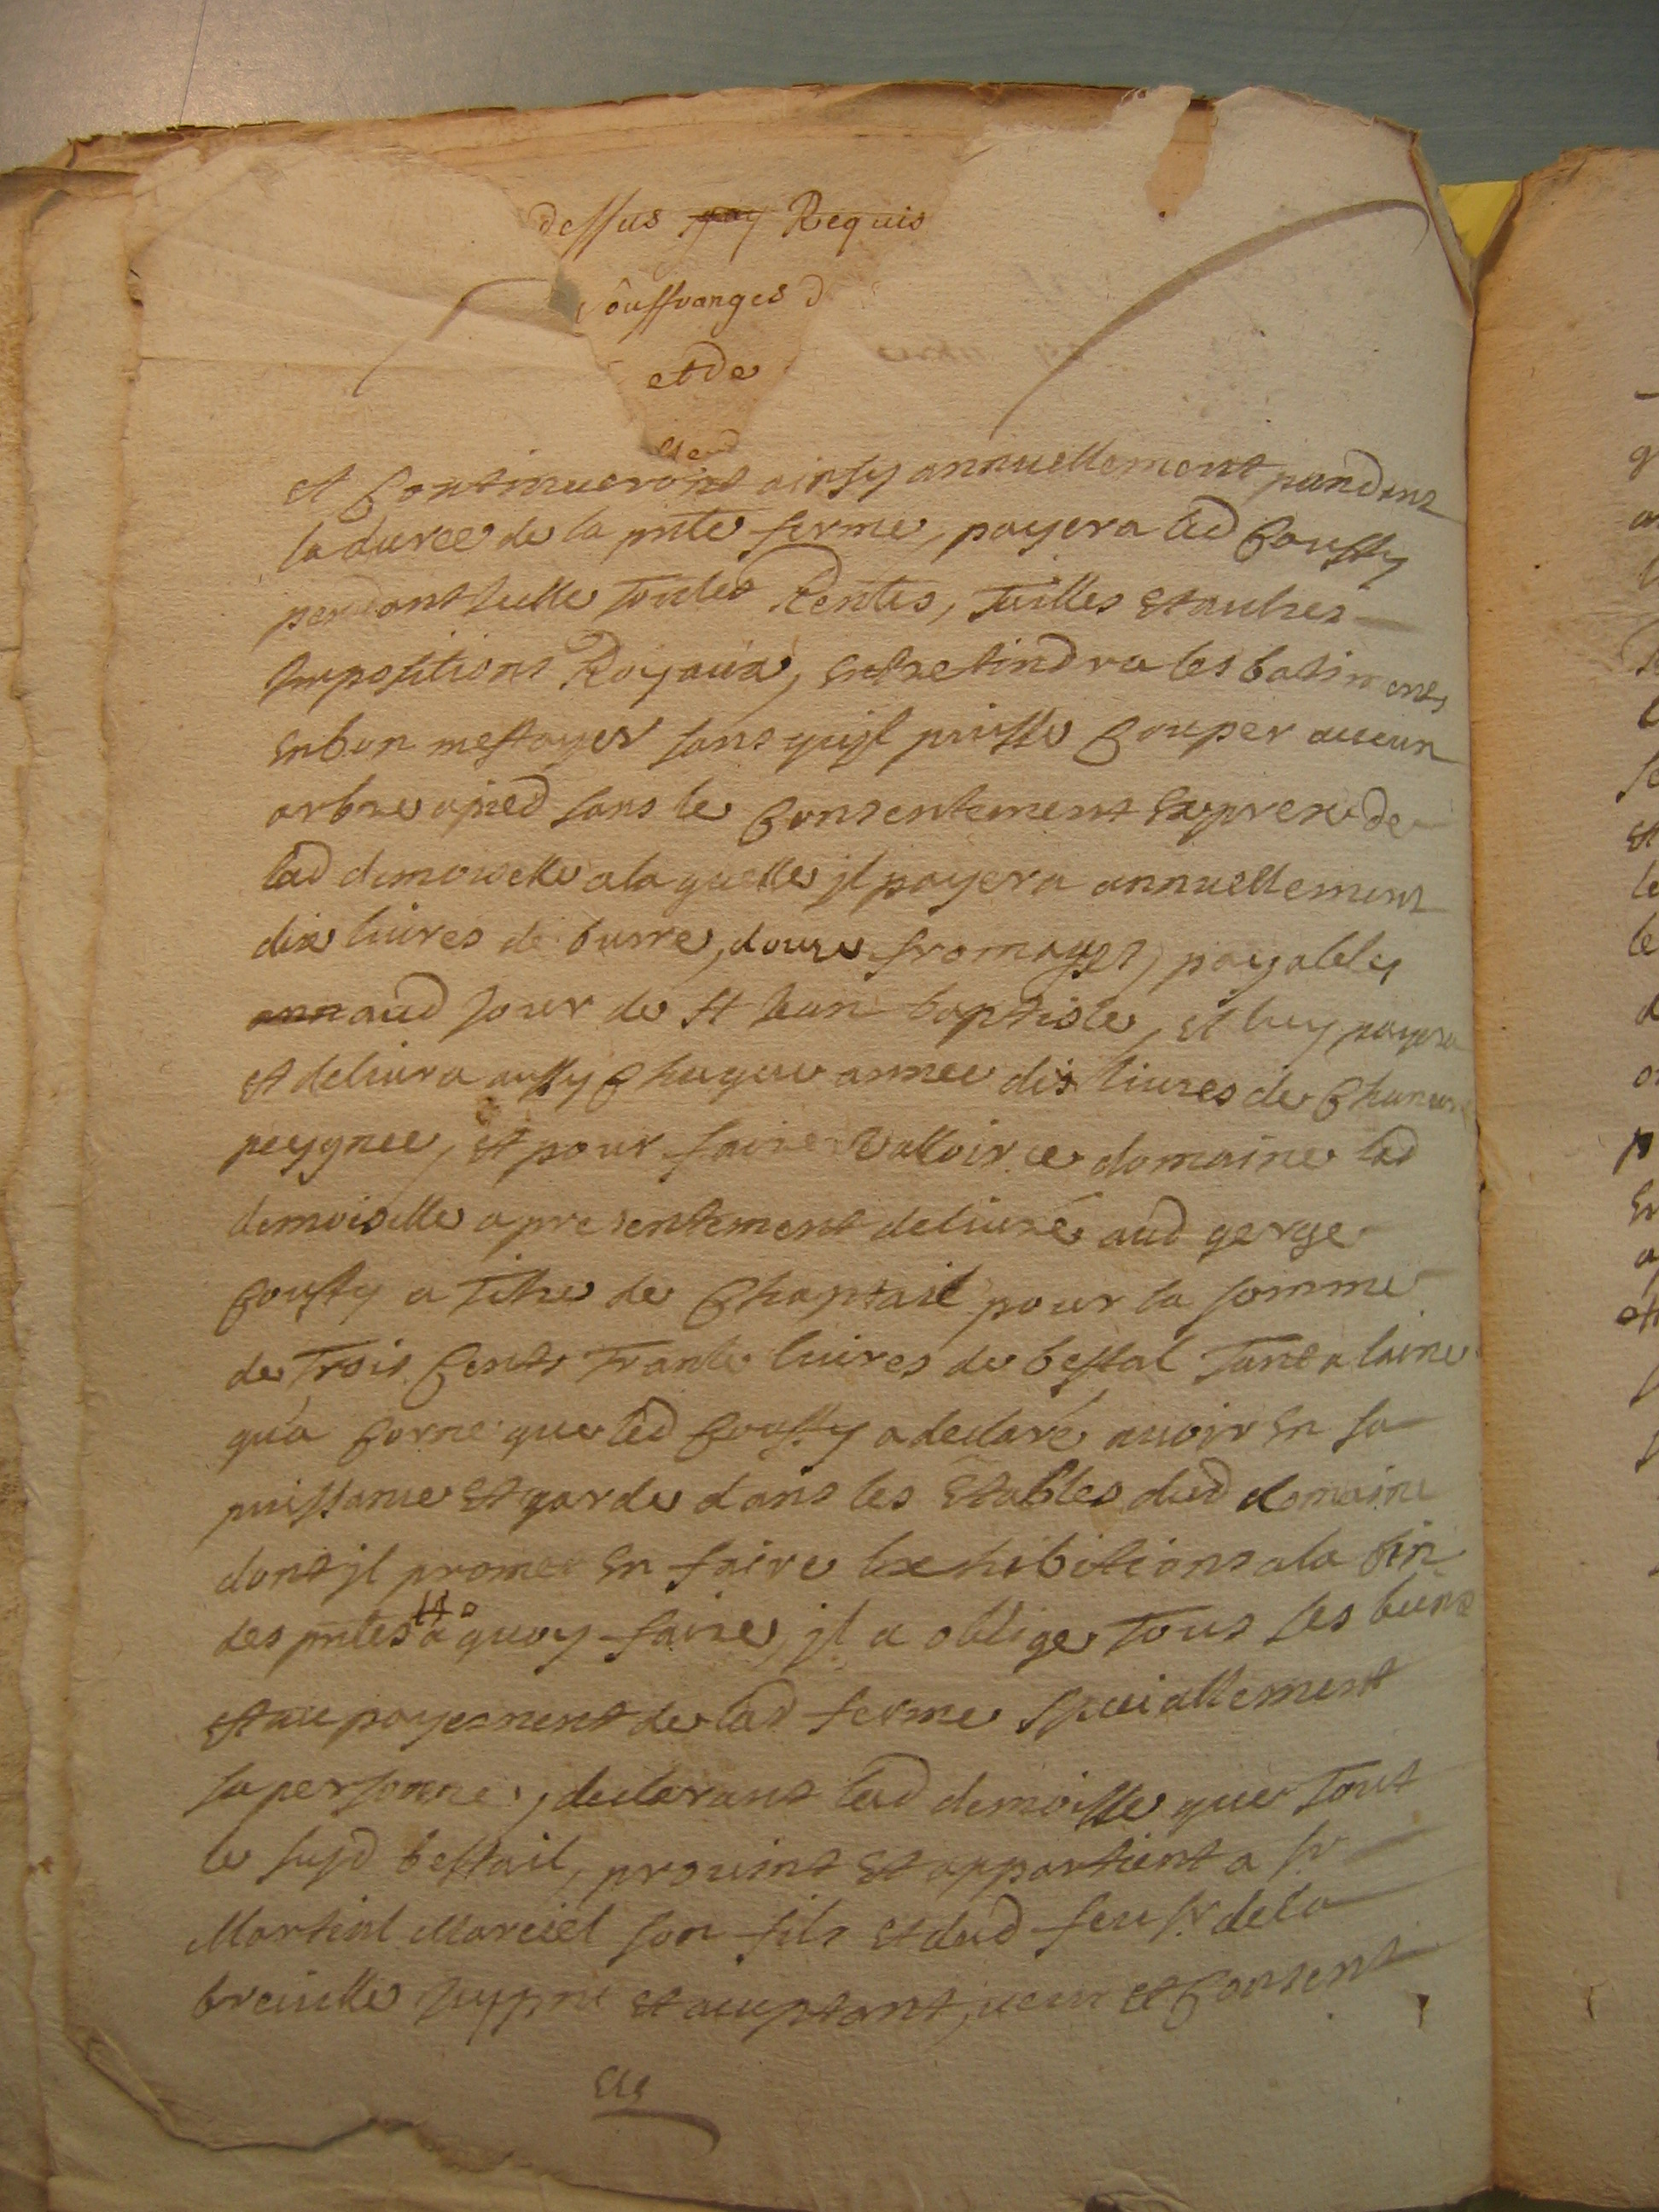 dessus Requis
souffranges d
et de
et continueront ainsy annuellement pandent
la duree de la pnte ferme, payera led Coussy
pendant icelle toutes Rentes, Tailles et autres
Impositions Royaux, entretindra les batiments
en bon mestayer sans qujl puisse couper aucun
arbre apied sans le consentement expres de
lad demoiselle a la quelle jl payera annuellement
dix liures de burre, douze fromages, payables
aud jour de st Jean baptiste, et luy payera
et deliura aussy chaque annee dix liures de chanure
peygnee, et pour faire valloir ce domaine lad
demoiselle a presentement deliuré aud gerge
Coussy a titre de chaptail pour la somme
de Trois cents Trante liures de bestal tant a laine
qu'a corne que led Coussy a declaré auoir en sa
puissance et garde dans les Etables dud domaine
dont jl promet en faire lexhibitions a la fin
des pntes a quoy faire, jl a oblige tous ses biens
et au payement de lad ferme speciallement
sa personne, declarant lad demoiselle que tout
le susd bestail, prouint et appartient a sr
Martial Marciel son fils et dud feu sr de la
breuille jcy pnt et acceptant, ueut et consent